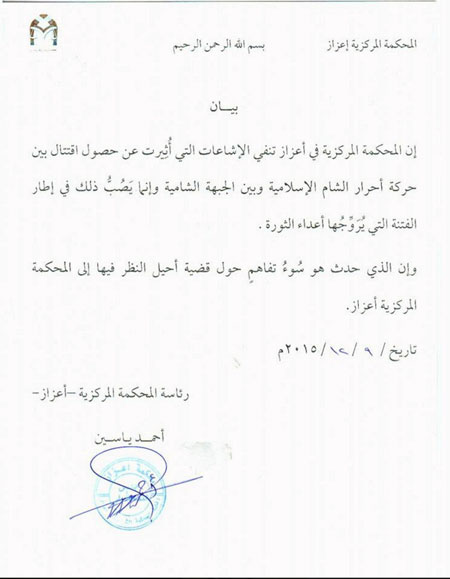 المحكمة المركزية إعزاز
بسم الله الرحمن الرحيم
بيـــان
إن المحكمة المركزية في أعزاز تنفي الإشاعات التي أُثِيرت عن حصول اقتتال بين
حركة أحرار الشام الإسلامية وبين الجبهة الشامية وإنما يَصُبُّ ذلك في إطار
الفتنة التي يُرَوِّجُها أعداء الثورة .
وإن الذي حدث هو سُوءُ تفاهمٍ حول قضية أحيل النظر فيها إلى المحكمة
المركزية أعزاز.
تاريخ/ ٩ / ١٢ / ٢٠١٥م
رئاسة المحكمة المركزية –أعزاز–
أحمد ياسين